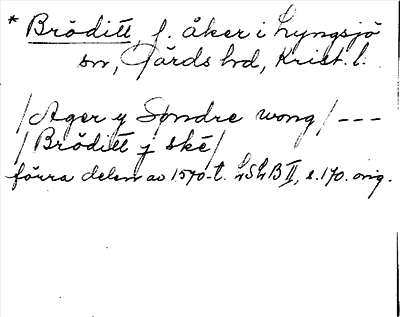 * Bröditt, f. åker i Lyngsjö
sn, Gärds hd, Krist. l.
/Ager y Sondre wong/ ---
/Bröditt j ské/
förra delen av 1570-t. LSLB II, s. 170. orig.